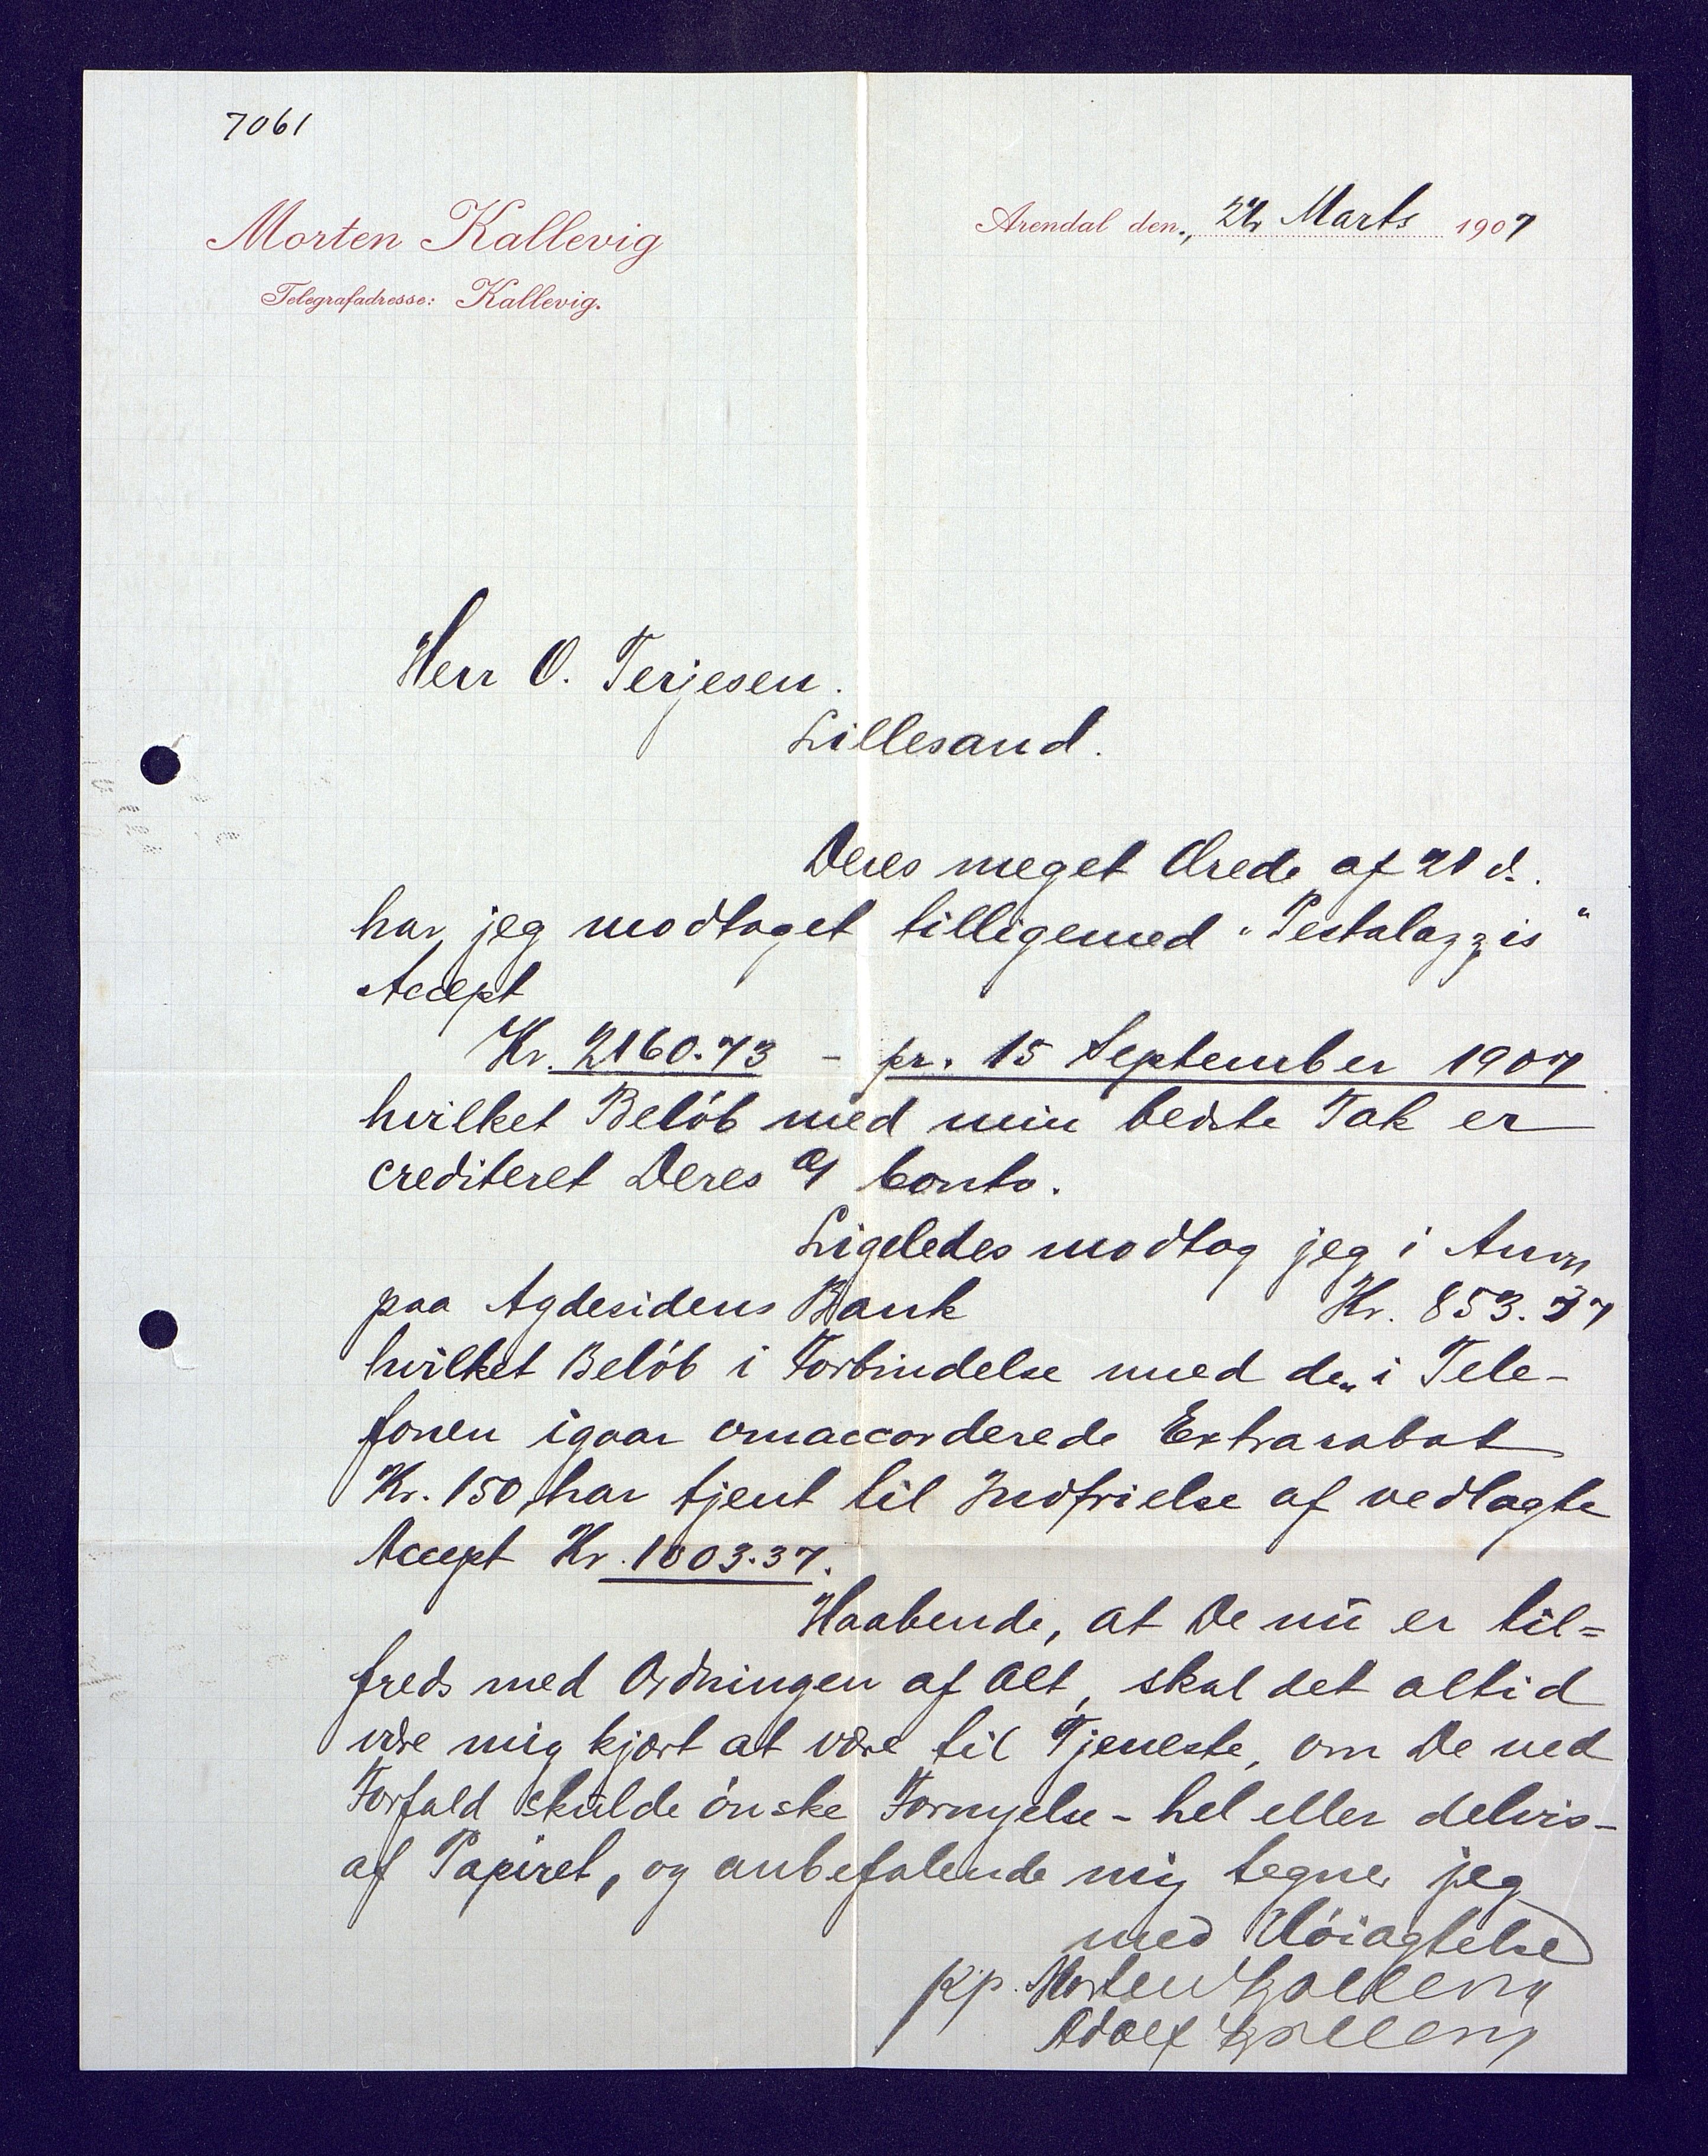 7061
Morten Kallevig
Telegrafadresse: Kallevig.
Arendal den, 22 Marts 1907
Herr O. Terjesen.
Lillesand.
Deres meget Ærede af 21 ds.
har jeg modtaget tilligemed "Pestalozzis"
Accept
Kr. 2160.73 - pr. 15 September 1907
hvilket Beløb med min bedste Tak er
crediteret Deres a/ Conto.
Ligeledes modtog jeg i Anvn
paa Agdesidens Bank Kr. 853.37
hvilket Beløb i Forbindelse med den i Tele-
fonen igaar omaccorderede Extrarabat
Kr. 150, har tjent til Indfrielse af vedlagte
Accept Kr. 1003.37.
Haabende, at De nu er til=
freds med Ordningen af Alt, skal det altid
være mig kjært at være til Tjeneste, om De ved
Forfald skulde ønske Fornyelse - hel eller delvis -
af Papiret, og anbefalende mig tegner jeg
med Høiagtelse
pp. Morten Kallevig
Adolf Kallevig